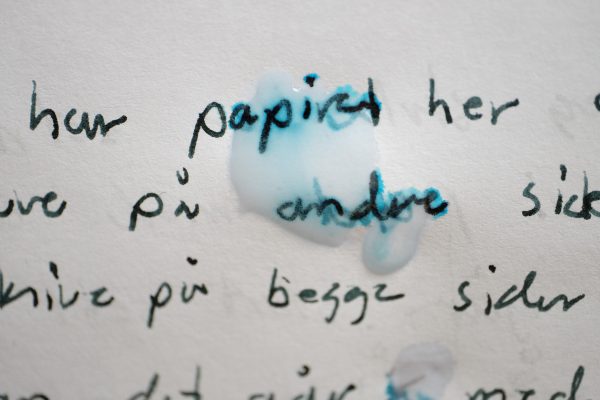 har papiret her
på andre side
skrive på begge sider
det går med